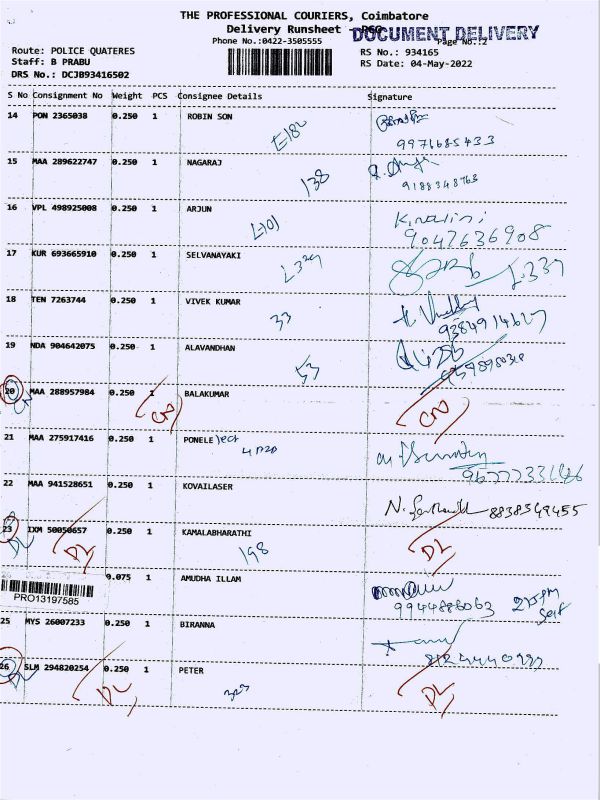 THE PROFESSIONAL COURIERS, Coimbatore
Delivery Runsheet -
DOCUMENT DELIVERY
Phone No.:0422-3505555
Page No.:2
Route: POLICE QUATERES
RS No.: 934165
Staff: B PRABU
RS Date: 04-May-2022
DRS No.: DCJB93416502
S No Consignment No Weight PCS Consignee Details Signature
14 PON 2365038 0.250 1 ROBIN SON L-182
9971685433
15 MAA 289622747 0.250 1 NAGARAJ 138
9188348763
16 VPL 498925008 0.250 1 ARJUN L-101 K.nalini
9047636908
17 KUR 693665910 0.250 1 SELVANAYAKI L-339
18 TEN 7263744 0.250 1 VIVEK KUMAR 33
9384914627
19 NDA 904642075 0.250 1 ALAVANDHAN 53
20 MAA 288957984 0.250 1 BALAKUMAR
21 MAA 275917416 0.250 1 PONELE
22 MAA 941528651 0.250 1 KOVAILASER
8838549455
23 IXM 50050657 0.250 1 KAMALABHARATHI 198
DL DL DL
0.075 1 AMUDHA ILLAM
PRO13197585
9944886063
25 MYS 26007233 0.250 1 BIRANNA
26 SLM 294820254 0.250 1 PETER 323
DL DL DL